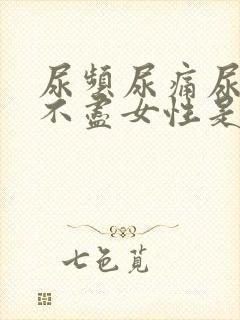 尿頻尿痛尿
不盡女性是
七色覓